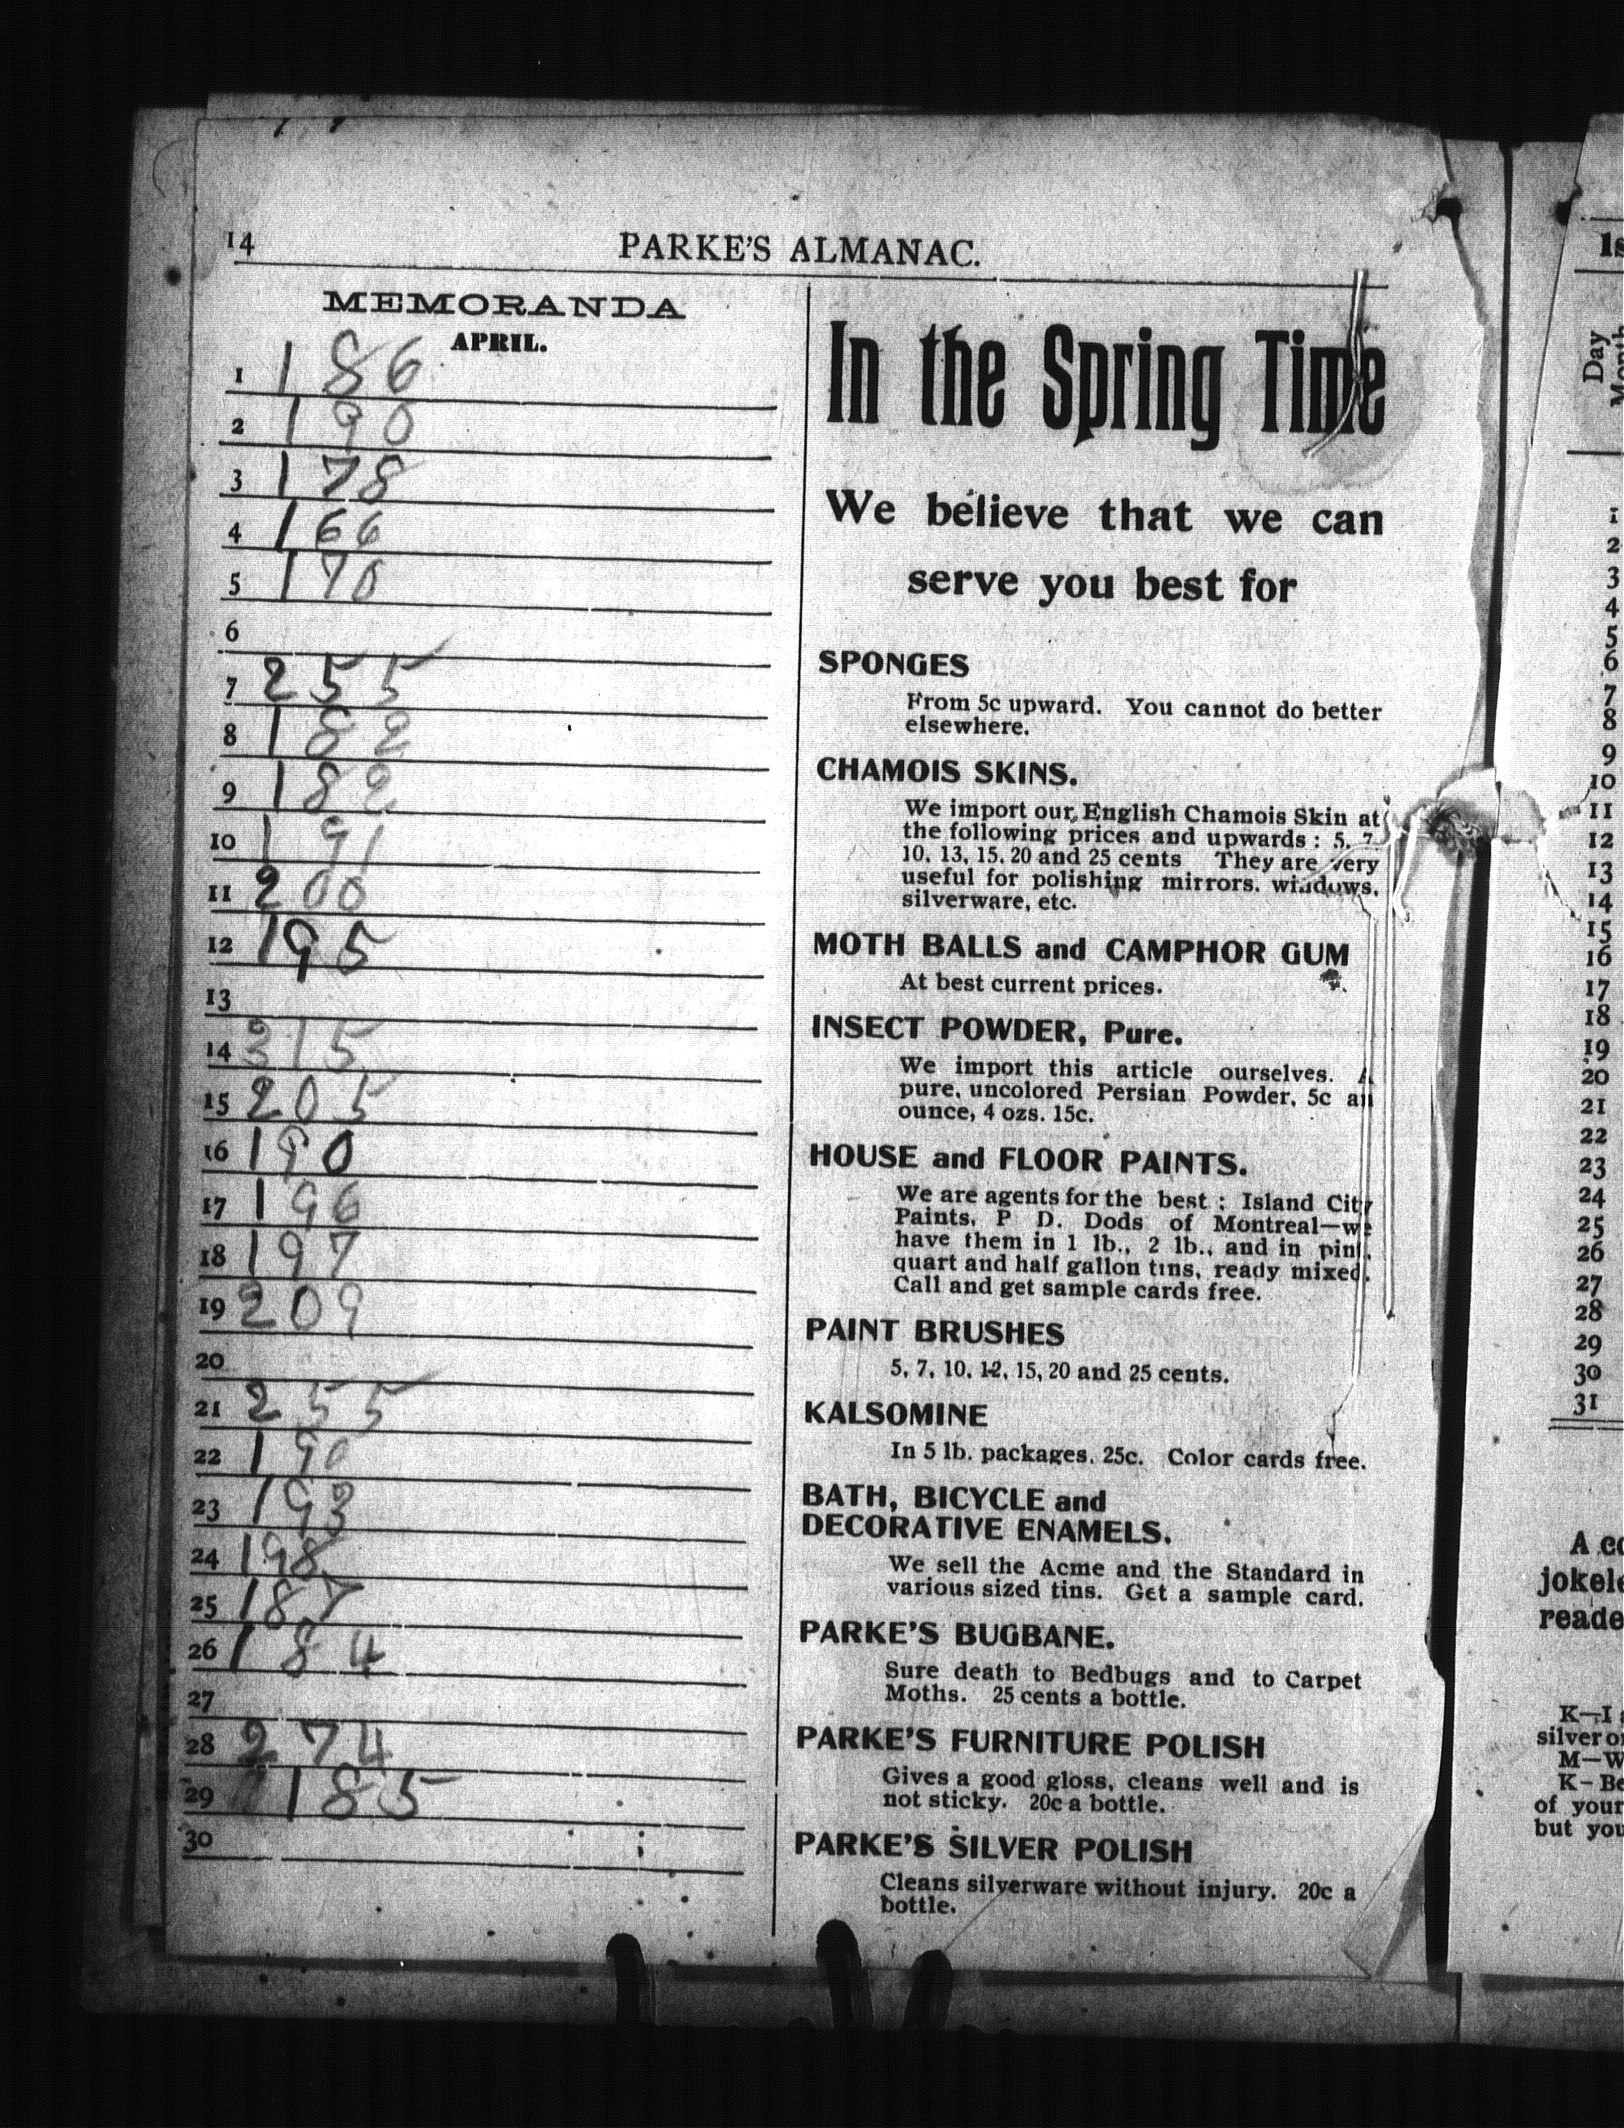 14
PARKE'S ALMANAC.
MEMORANDA
APRIL.
1 186
2 190
3 178
4 166
5 170
6
7 255
8 182
9 182
10 191
11 200
12 195
13
14 315
15 205
16 190
17 196
18 197
19 209
20
21 255
22 190
23 193
24 198
25 187
26 184
27
28 274
29 185
30
In the Spring Time
We believe that we can
serve you best for
SPONGES
From 5c upward. You cannot do better
elsewhere.
CHAMOIS SKINS.
We import our English Chamois Skin at
the following prices and upwards : 5, 7
10, 13, 15, 20 and 25 cents They are very
useful for polishing mirrors, windows,
silverware, etc.
MOTH BALLS and CAMPHOR GUM
At best current prices.
INSECT POWDER, Pure.
We import this article ourselves. A
pure, uncolored Persian Powder, 5c an
ounce, 4 ozs. 15c.
HOUSE and FLOOR PAINTS.
We are agents for the best : Island City
Paints, P D. Dods of Montreal—we
have them in 1 lb., 2 lb., and in pint,
quart and half gallon tins, ready mixed.
Call and get sample cards free.
PAINT BRUSHES
5, 7, 10, 12, 15, 20 and 25 cents.
KALSOMINE
In 5 lb. packages, 25c. Color cards free.
BATH, BICYCLE and
DECORATIVE ENAMELS.
We sell the Acme and the Standard in
various sized tins. Get a sample card.
PARKE'S BUGBANE.
Sure death to Bedbugs and to Carpet
Moths. 25 cents a bottle.
PARKE'S FURNITURE POLISH
Gives a good gloss, cleans well and is
not sticky. 20c a bottle.
PARKE'S SILVER POLISH
Cleans silverware without injury. 20c a
bottle.
Day
1
2
3
4
5
6
7
8
9
10
11
12
13
14
15
16
17
18
19
20
21
22
23
24
25
26
27
28
29
30
31
A
K—I
silver
M—W
K—Be
of your
but you